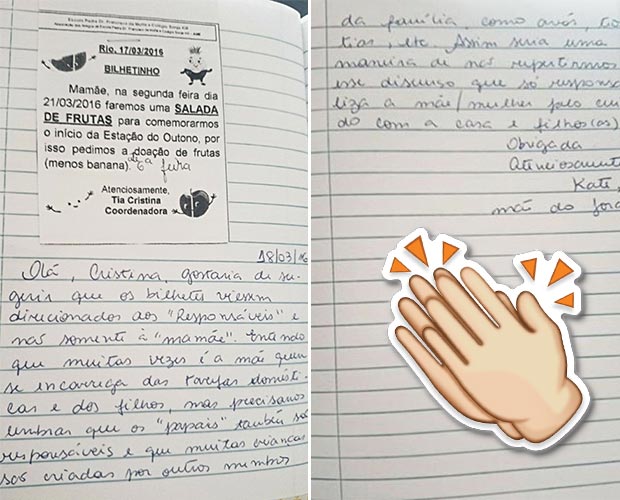 Rio, 17/03/2016
BILHETINHO
Mamãe, na segunda feira dia
21/03/2016 faremos uma SALADA
DE FRUTAS para comemorarmos
o início da Estação do Outono, por
isso pedimos a doação de frutas
(menos banana). até 6ª feira
Atenciosamente,
Tia Cristina
Coordenadora
18/03/16
Olá, Cristina, gostaria de su-
gerir que os bilhetes viessem
direcionados aos "Responsáveis" e
não somente à "mamãe". Entendo
que muitas vezes é a mãe quem
se encarrega das tarefas domésti-
cas e dos filhos, mas precisamos
lembrar que os "papais" também são
responsáveis e que muitas crianças
são criadas por outros membros
da família, como avós, tio
tias, etc. Assim seria uma
maneira de não repetirmos
esse discurso que só responsa
liza a mãe/mulher pelo cui
do com a casa e filhos(as)
Obrigada
Atenciosament
Kate,
mãe do